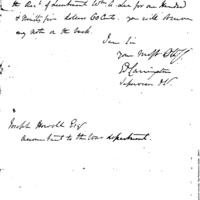 the Rect of Lieutenant Wm C. Lee for one Hundred
& Ninety five dollars 60 Cents. you will observe
my note on the back.
I am Sir
your Most Obt
E Carrington
Supervisor
Joseph Howell Esq
accountant to the War department.